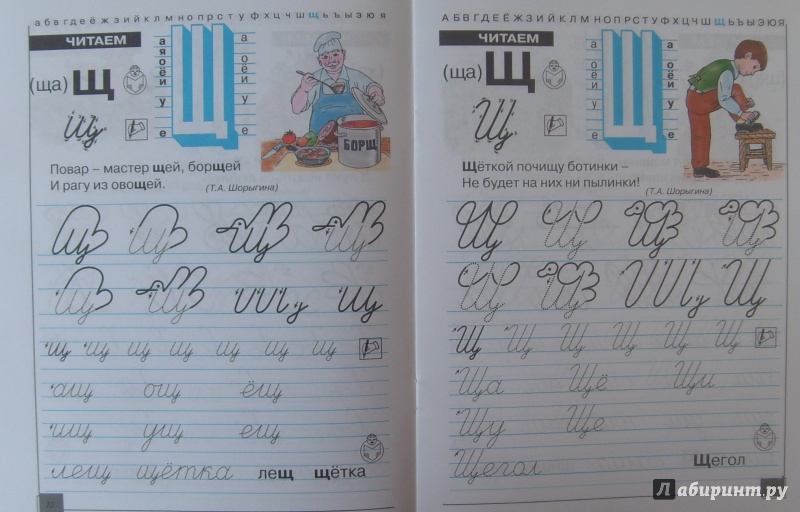 абвгдеёжзийклмнопрстуфхцчшщъыьэюя
ЧИТАЕМ
(ща) Щ
а
я
о
ё
и
у
е
Щ
а
о
ё
и
у
е
щ
БОРЩ
Повар – мастер щей, борщей
И рагу из овощей.
(Т.А. Шорыгина)
щ щ щ щ
щ щ щ
щ щ щ щ щ щ щ
ащ ощ ёщ
ищ ущ ещ
лещ щётка лещ щётка
72
АБВГДЕЁЖЗИЙКЛМНОПРСТУФХЦЧШЩЪЫЬЭЮЯ
ЧИТАЕМ
(ща) Щ
а
о
ё
и
у
е
Щ
а
о
ё
и
у
е
Щ
Щёткой почищу ботинки –
Не будет на них ни пылинки!
(Т.А. Шорыгина)
Щ Щ Щ Щ
Щ Щ Щ
Щ Щ Щ Щ Щ Щ
Ща Щё Щи
Щу Ще
Щегол Щегол
Лабиринт.ру